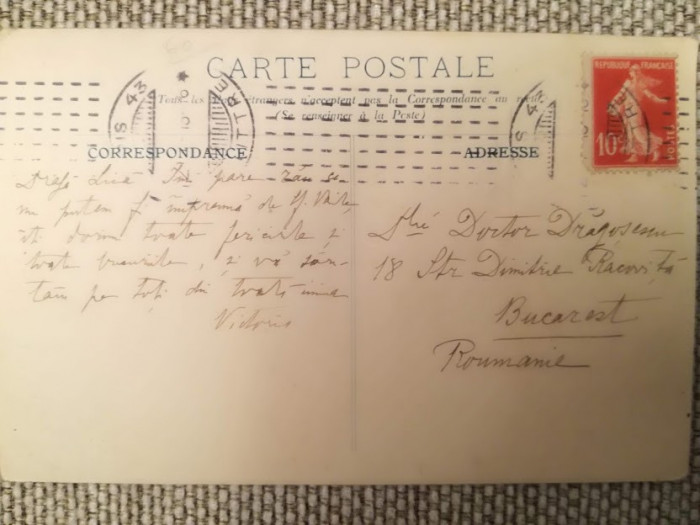 CARTE POSTALE
Tous les étrangers n'acceptent pas la Correspondance au
(Se renseigner à la Poste)
CORRESPONDANCE
ADRESSE
REPUBLIQUE FRANÇAISE
10
POSTES
S 43
TTRE
S 43
TRE
Dragă Lică Îmi pare rău
nu putem fi împreună de
îți doresc toate fericirile și
toate bucuriile, și vă săru-
tăm pe toți din toată inima
Victoris
Doctor Drăgoșescu
18 Str Dimitrie Racoviță
Bucarest
Roumanie